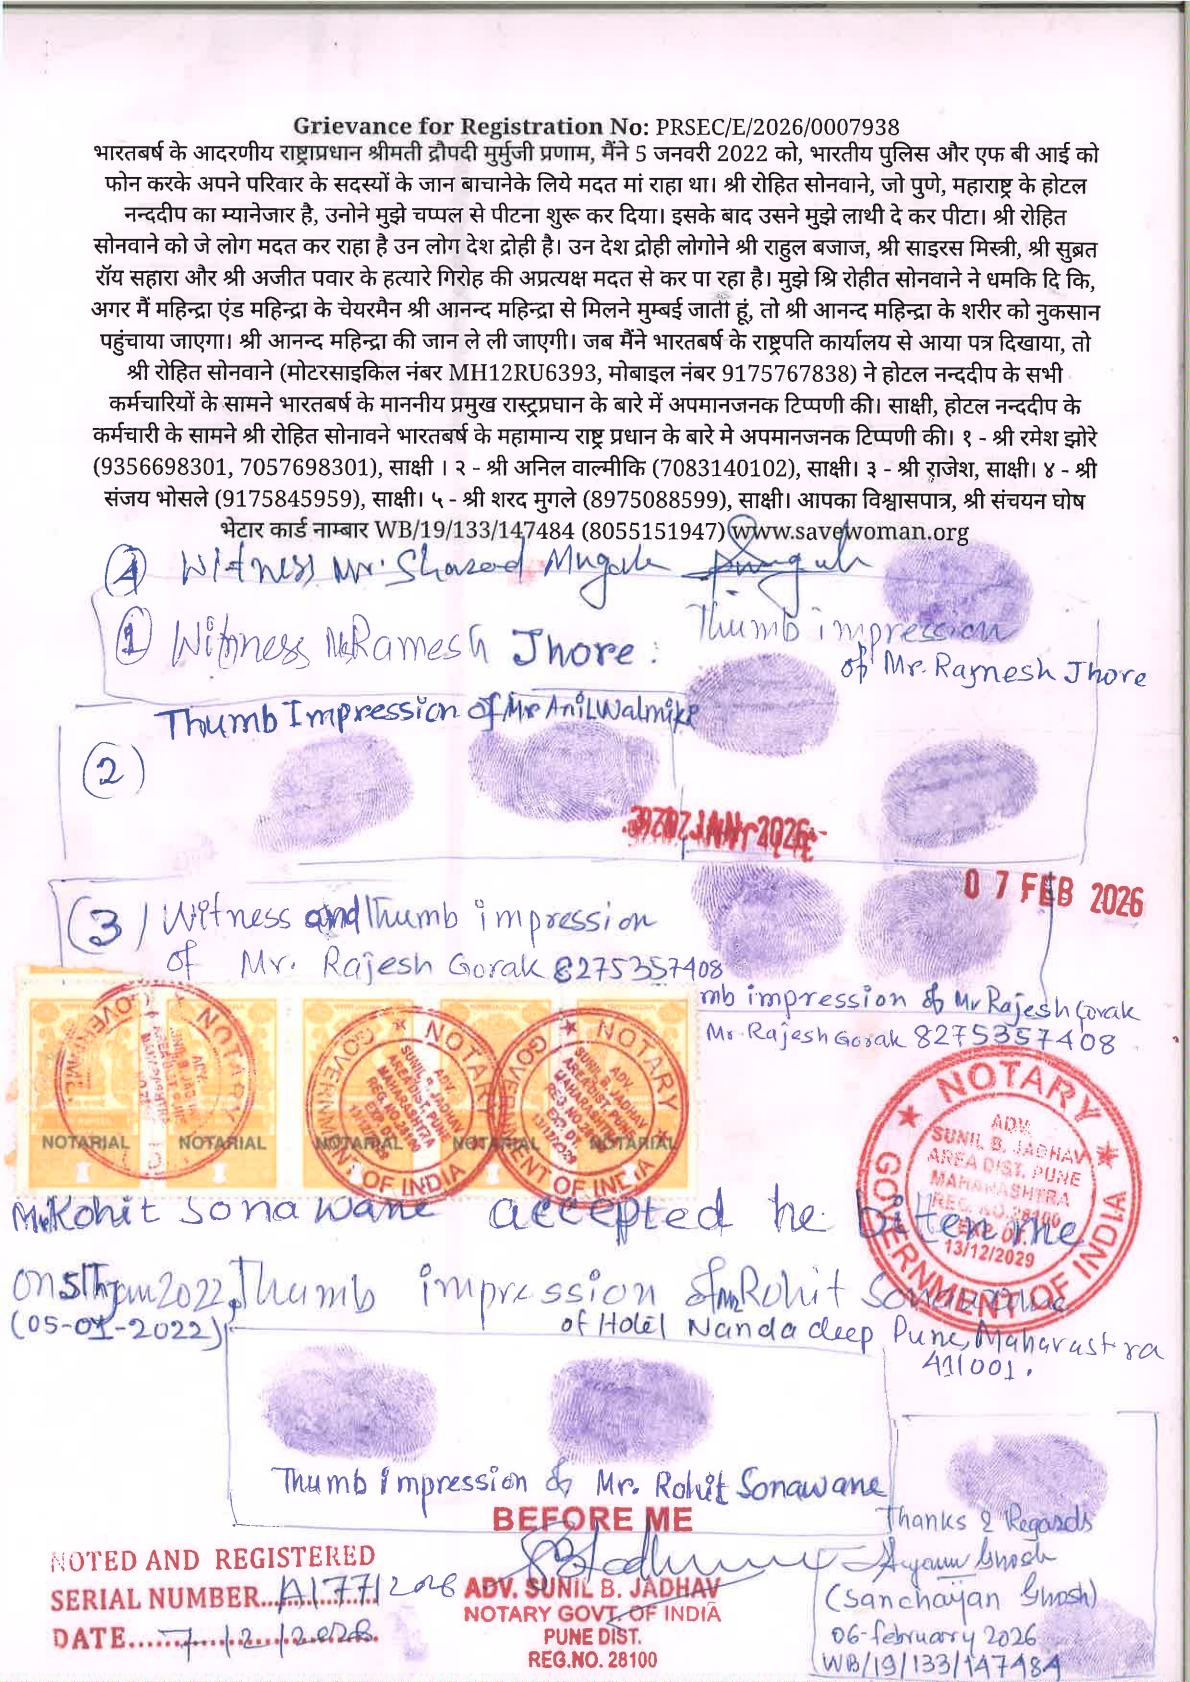 Grievance for Registration No: PRSEC/E/2026/0007938
भारतबर्ष के आदरणीय राष्ट्राप्रधान श्रीमती द्रौपदी मुर्मुजी प्रणाम, मैंने 5 जनवरी 2022 को, भारतीय पुलिस और एफ बी आई को
फोन करके अपने परिवार के सदस्यों के जान बाचानेके लिये मदत मां राहा था। श्री रोहित सोनवाने, जो पुणे, महाराष्ट्र के होटल
नन्ददीप का म्यानेजार है, उनोने मुझे चप्पल से पीटना शुरू कर दिया। इसके बाद उसने मुझे लाथी दे कर पीटा। श्री रोहित
सोनवाने को जे लोग मदत कर राहा है उन लोग देश द्रोही है। उन देश द्रोही लोगोने श्री राहुल बजाज, श्री साइरस मिस्त्री, श्री सुब्रत
रॉय सहारा और श्री अजीत पवार के हत्यारे गिरोह की अप्रत्यक्ष मदत से कर पा रहा है। मुझे श्रि रोहीत सोनवाने ने धमकि दि कि,
अगर मैं महिन्द्रा एंड महिन्द्रा के चेयरमैन श्री आनन्द महिन्द्रा से मिलने मुम्बई जाती हूं, तो श्री आनन्द महिन्द्रा के शरीर को नुकसान
पहुंचाया जाएगा। श्री आनन्द महिन्द्रा की जान ले ली जाएगी। जब मैंने भारतबर्ष के राष्ट्रपति कार्यालय से आया पत्र दिखाया, तो
श्री रोहित सोनवाने (मोटरसाइकिल नंबर MH12RU6393, मोबाइल नंबर 9175767838) ने होटल नन्ददीप के सभी
कर्मचारियों के सामने भारतबर्ष के माननीय प्रमुख रास्ट्रप्रघान के बारे में अपमानजनक टिप्पणी की। साक्षी, होटल नन्ददीप के
कर्मचारी के सामने श्री रोहित सोनावने भारतबर्ष के महामान्य राष्ट्र प्रधान के बारे मे अपमानजनक टिप्पणी की। १ - श्री रमेश झोरे
(9356698301, 7057698301), साक्षी । २ - श्री अनिल वाल्मीकि (7083140102), साक्षी। ३ - श्री राजेश, साक्षी। ४ - श्री
संजय भोसले (9175845959), साक्षी। ५ - श्री शरद मुगले (8975088599), साक्षी। आपका विश्वासपात्र, श्री संचयन घोष
भेटार कार्ड नाम्बार WB/19/133/147484 (8055151947) www.savewoman.org
(4) Witness Mr. Sharad Mugale
(1) Witness Mr Ramesh Jhore.
Thumb impression
of Mr. Ramesh Jhore
Thumb Impression of Mr Anil Walmiki
(2)
07 FEB 2026
(3) Witness and Thumb impression
of Mr. Rajesh Gorak 8275357408
mb impression of Mr Rajesh Gorak
Mr. Rajesh Gorak 8275357408
NOTARIAL NOTARIAL NOTARIAL NOTARIAL NOTARIAL
NOTARY
GOVERNMENT OF INDIA
ADV.
SUNIL B. JADHAV
AREA DIST. PUNE
MAHARASHTRA
REG. NO. 28100
EXP. DT.
13/12/2029
Mr. Rohit Sonawane accepted he biten me
on 5th Jan 2022. Thumb impression of Mr Rohit Sonawane
(05-01-2022)
of Hotel Nandadeep Pune, Maharastra
411001.
Thumb Impression of Mr. Rohit Sonawane
BEFORE ME
ADV. SUNIL B. JADHAV
NOTARY GOVT. OF INDIA
PUNE DIST.
REG.NO. 28100
NOTED AND REGISTERED
SERIAL NUMBER A/77/2026
DATE 7/2/2026
Thanks & Regards
(Sanchayan Ghosh)
06-february 2026
WB/19/133/147484